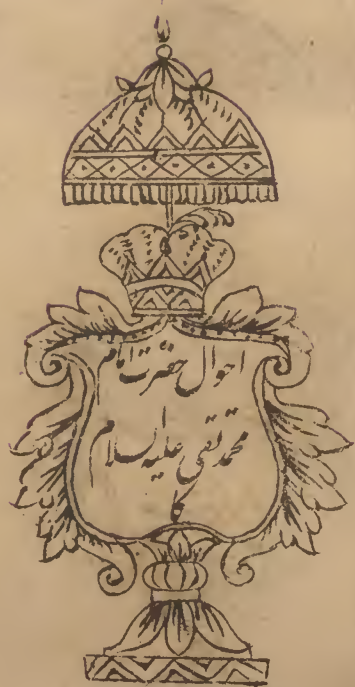 احوال حضرت امام
محمد تقی علیہ السلام
کا